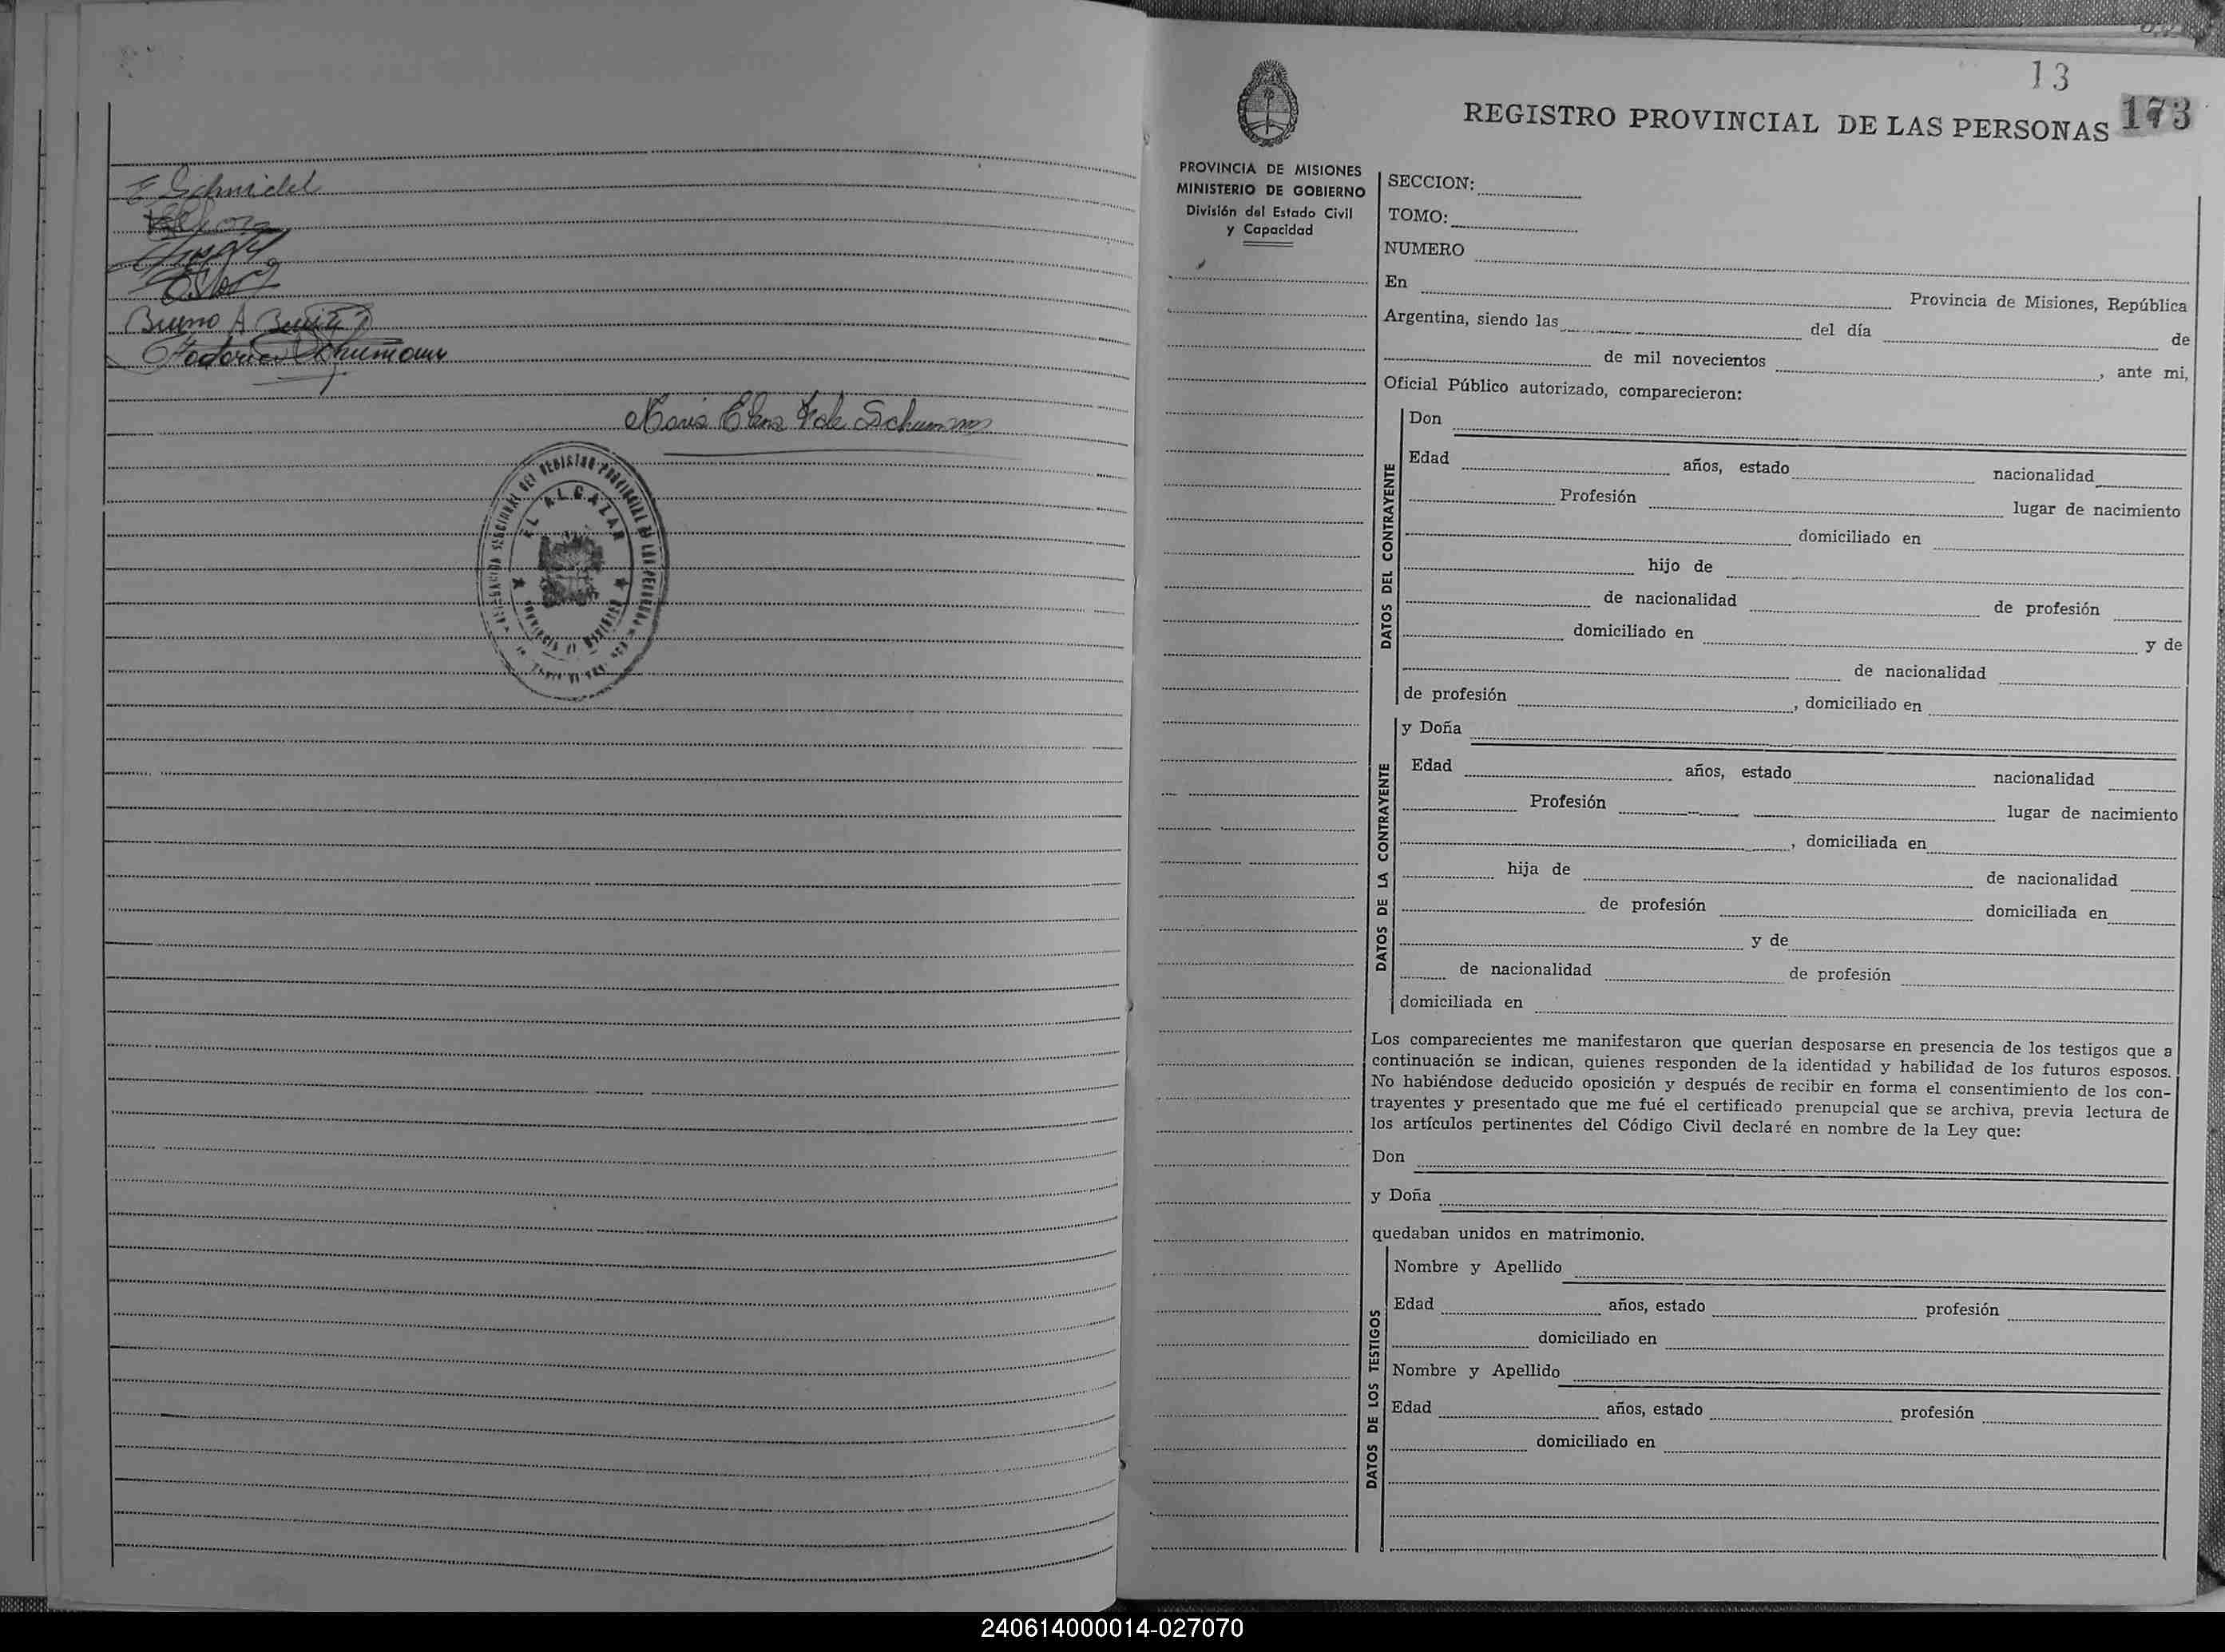 E Schmidel
Bruno A
Schumann
Maria Elena F de Schumann
EL ALCAZAR
PROVINCIA DE MISIONES
13
REGISTRO PROVINCIAL DE LAS PERSONAS 173
PROVINCIA DE MISIONES
MINISTERIO DE GOBIERNO
División del Estado Civil
y Capacidad
SECCION:
TOMO:
NUMERO
En Provincia de Misiones, República
Argentina, siendo las del día de
de mil novecientos , ante mi,
Oficial Público autorizado, comparecieron:
DATOS DEL CONTRAYENTE
Don
Edad años, estado nacionalidad
Profesión lugar de nacimiento
domiciliado en
hijo de
de nacionalidad de profesión
domiciliado en y de
de nacionalidad
de profesión , domiciliado en
DATOS DE LA CONTRAYENTE
y Doña
Edad años, estado nacionalidad
Profesión lugar de nacimiento
, domiciliada en
hija de de nacionalidad
de profesión domiciliada en
y de
de nacionalidad de profesión
domiciliada en
Los comparecientes me manifestaron que querían desposarse en presencia de los testigos que a
continuación se indican, quienes responden de la identidad y habilidad de los futuros esposos.
No habiéndose deducido oposición y después de recibir en forma el consentimiento de los con-
trayentes y presentado que me fué el certificado prenupcial que se archiva, previa lectura de
los artículos pertinentes del Código Civil declaré en nombre de la Ley que:
Don
y Doña
quedaban unidos en matrimonio.
DATOS DE LOS TESTIGOS
Nombre y Apellido
Edad años, estado profesión
domiciliado en
Nombre y Apellido
Edad años, estado profesión
domiciliado en
240614000014-027070